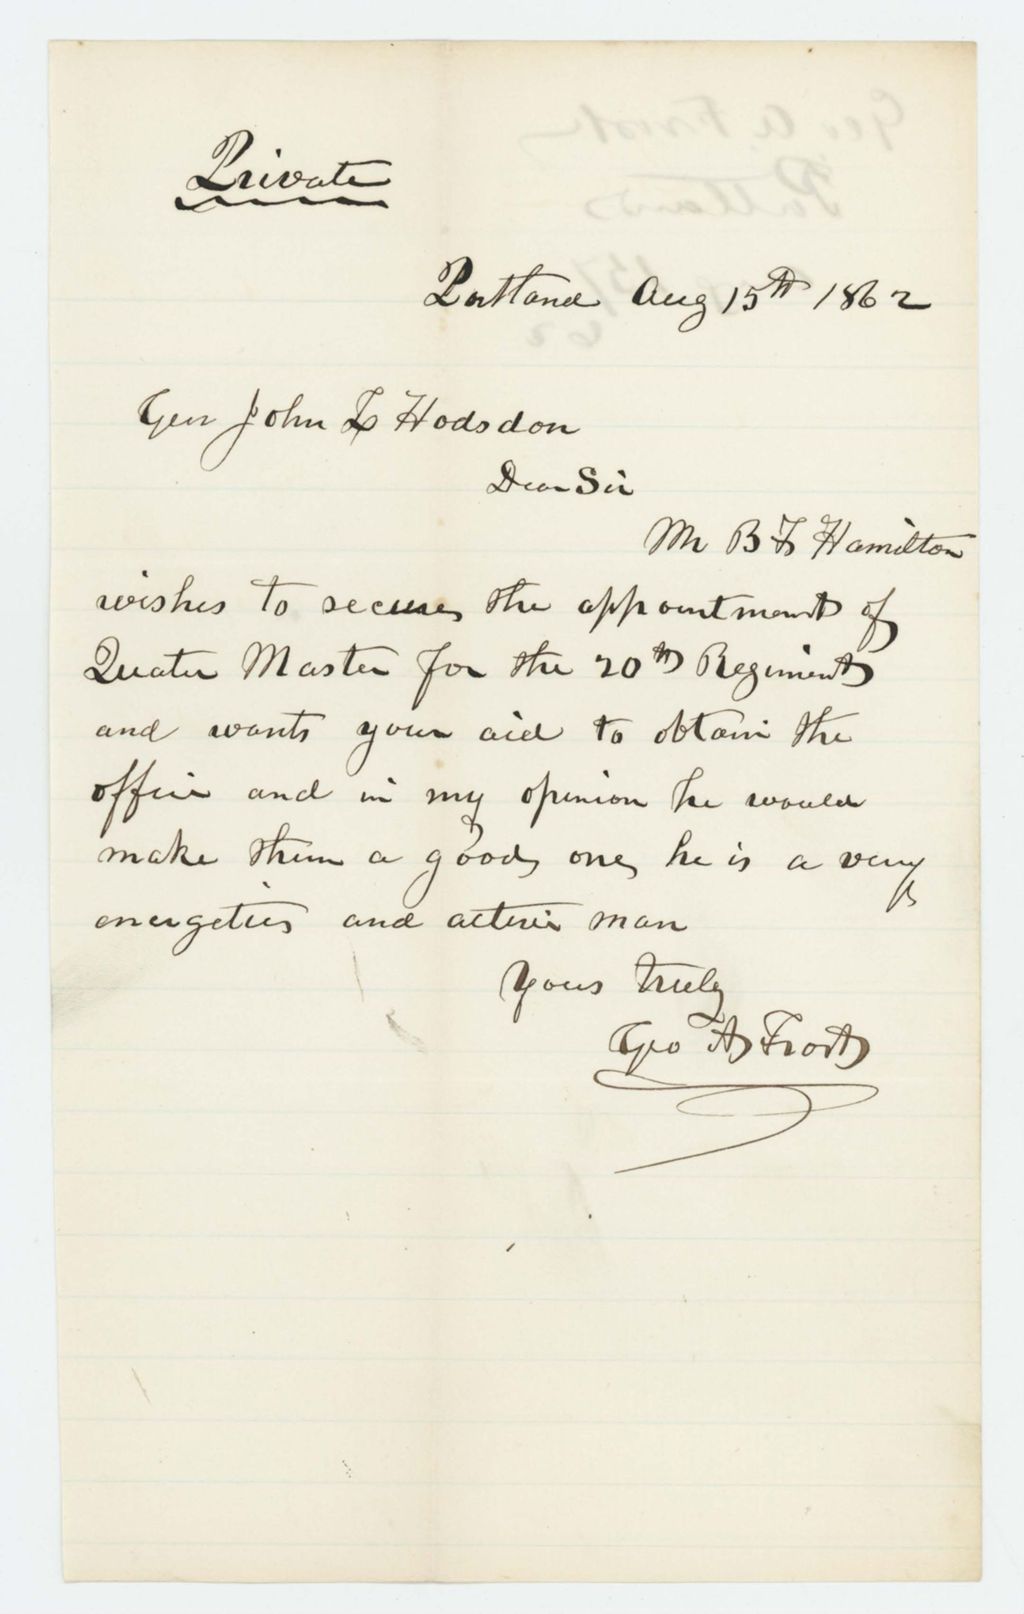 Private
Portland Aug 15th 1862
Gen John L Hodsdon
Dear Sir
Mr B F Hamilton
wishes to secure the appointment of
Quater Master for the 20th Regiment
and wants your aid to obtain the
office and in my opinion he would
make them a good one, he is a very
energetics and active man
Yours truly
Geo A Frost